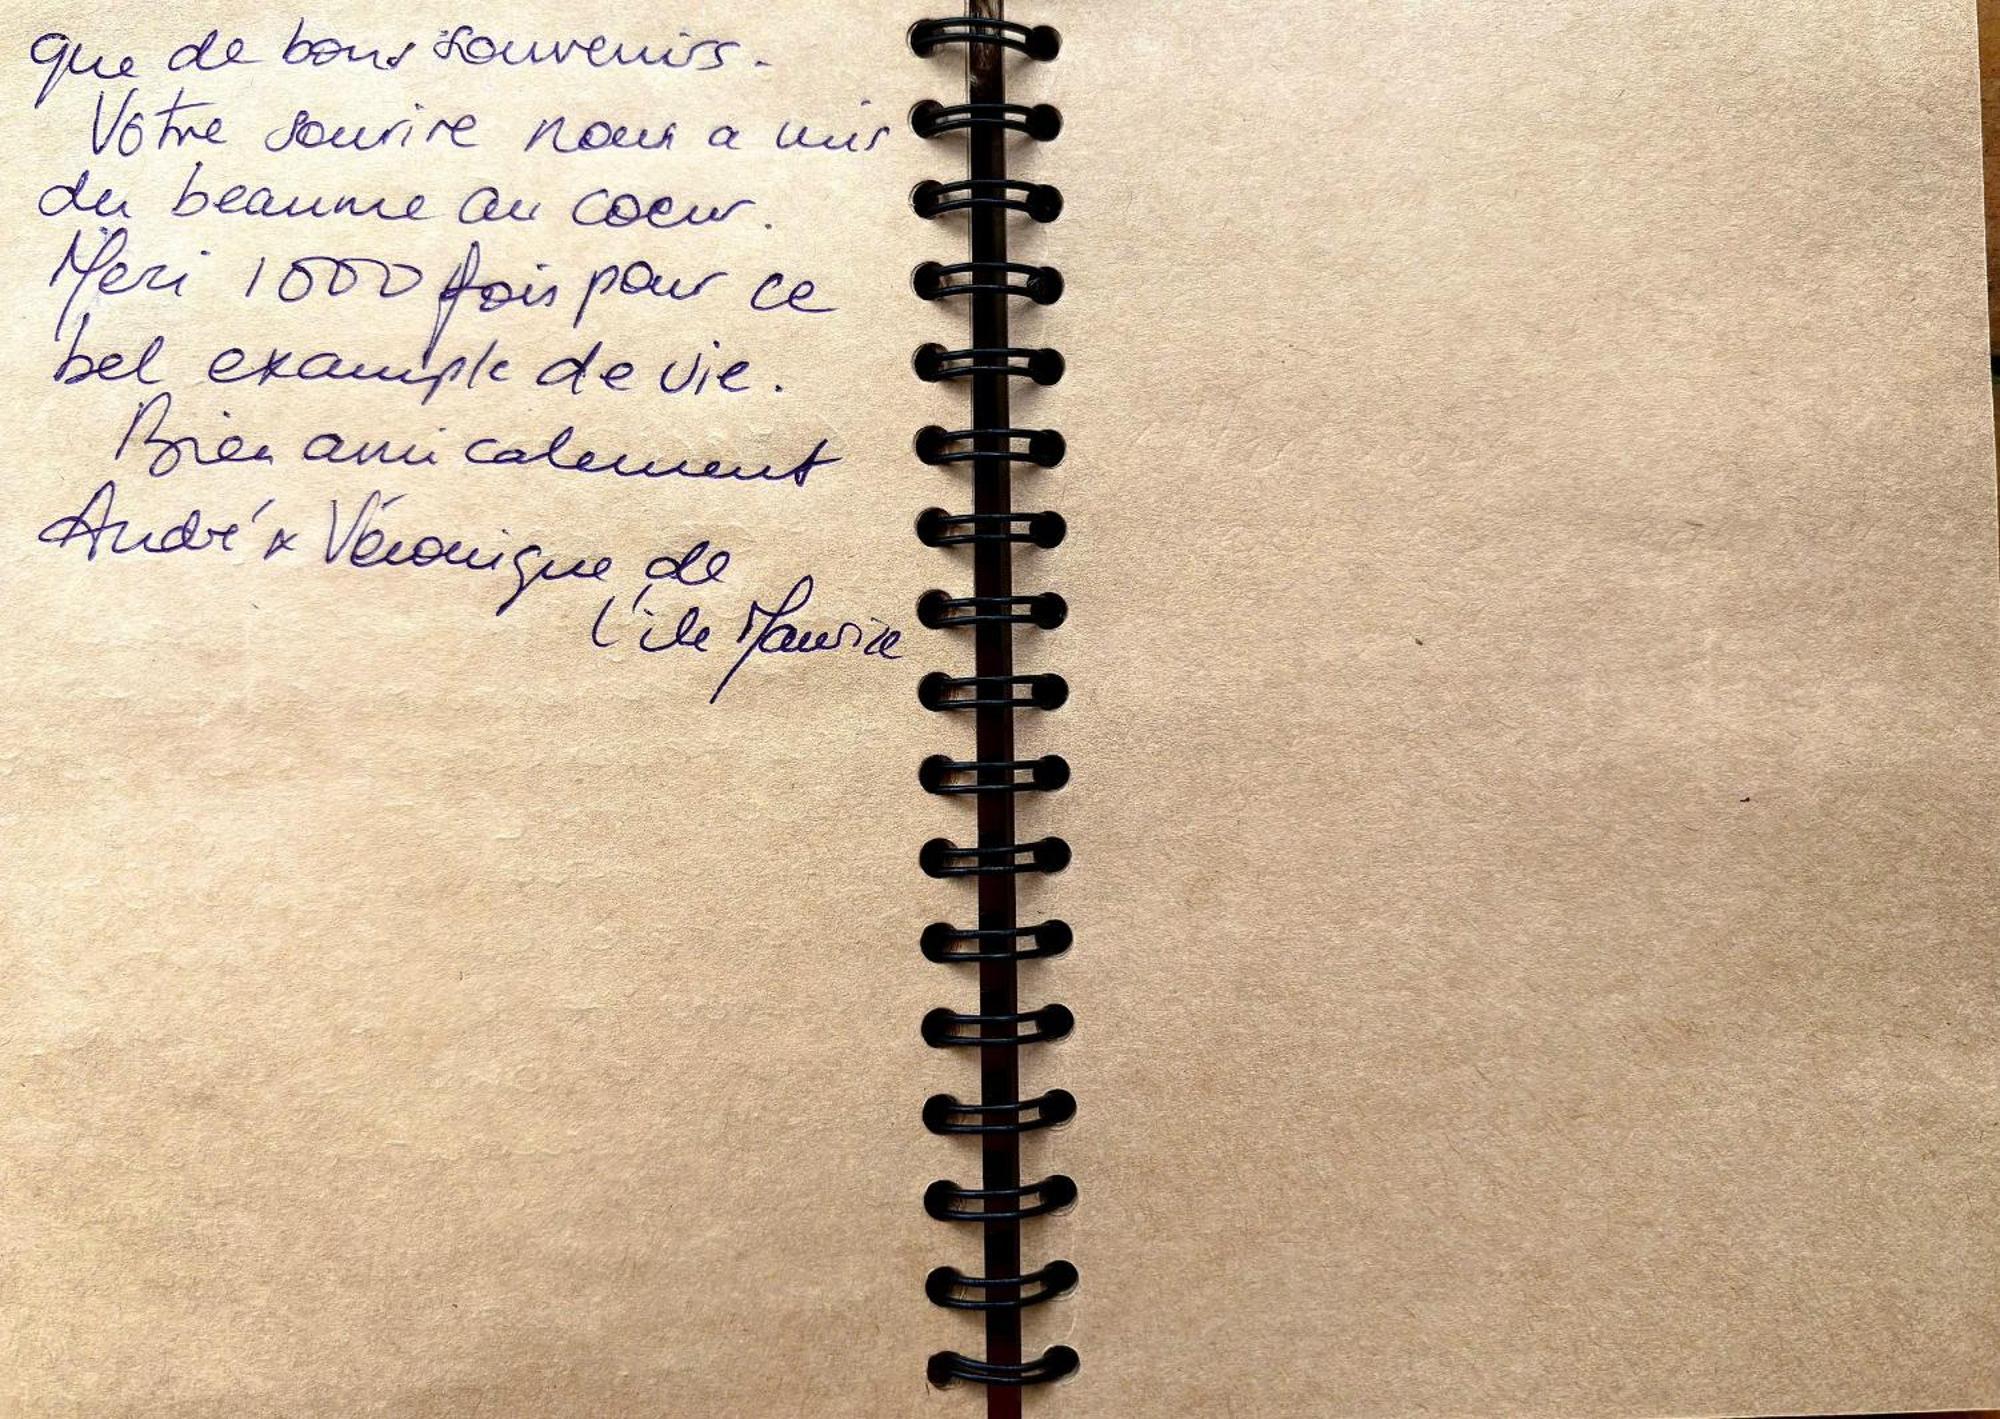 que de bons souvenirs.
Votre sourire nous a mis
du beaume au coeur.
Merci 1000 fois pour ce
bel example de vie.
Bien amicalement
André x Véronique de
l'île Maurice